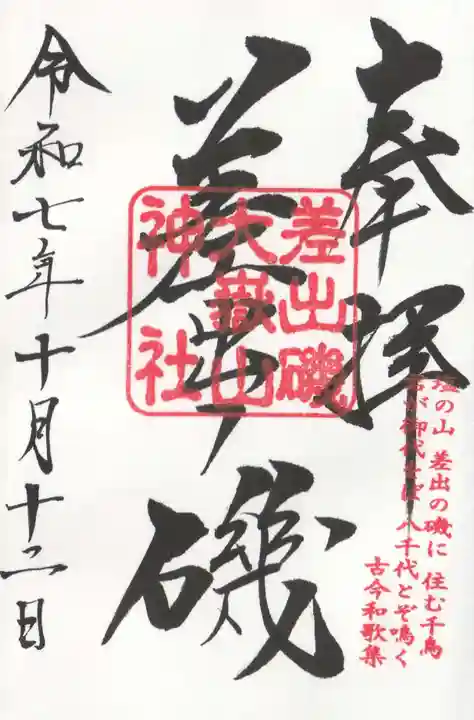 奉拝
差出ノ磯
差出磯
大嶽山
神社
塩の山 差出の磯に 住む千鳥
君が御代をば 八千代とぞ鳴く
古今和歌集
令和七年十月十二日